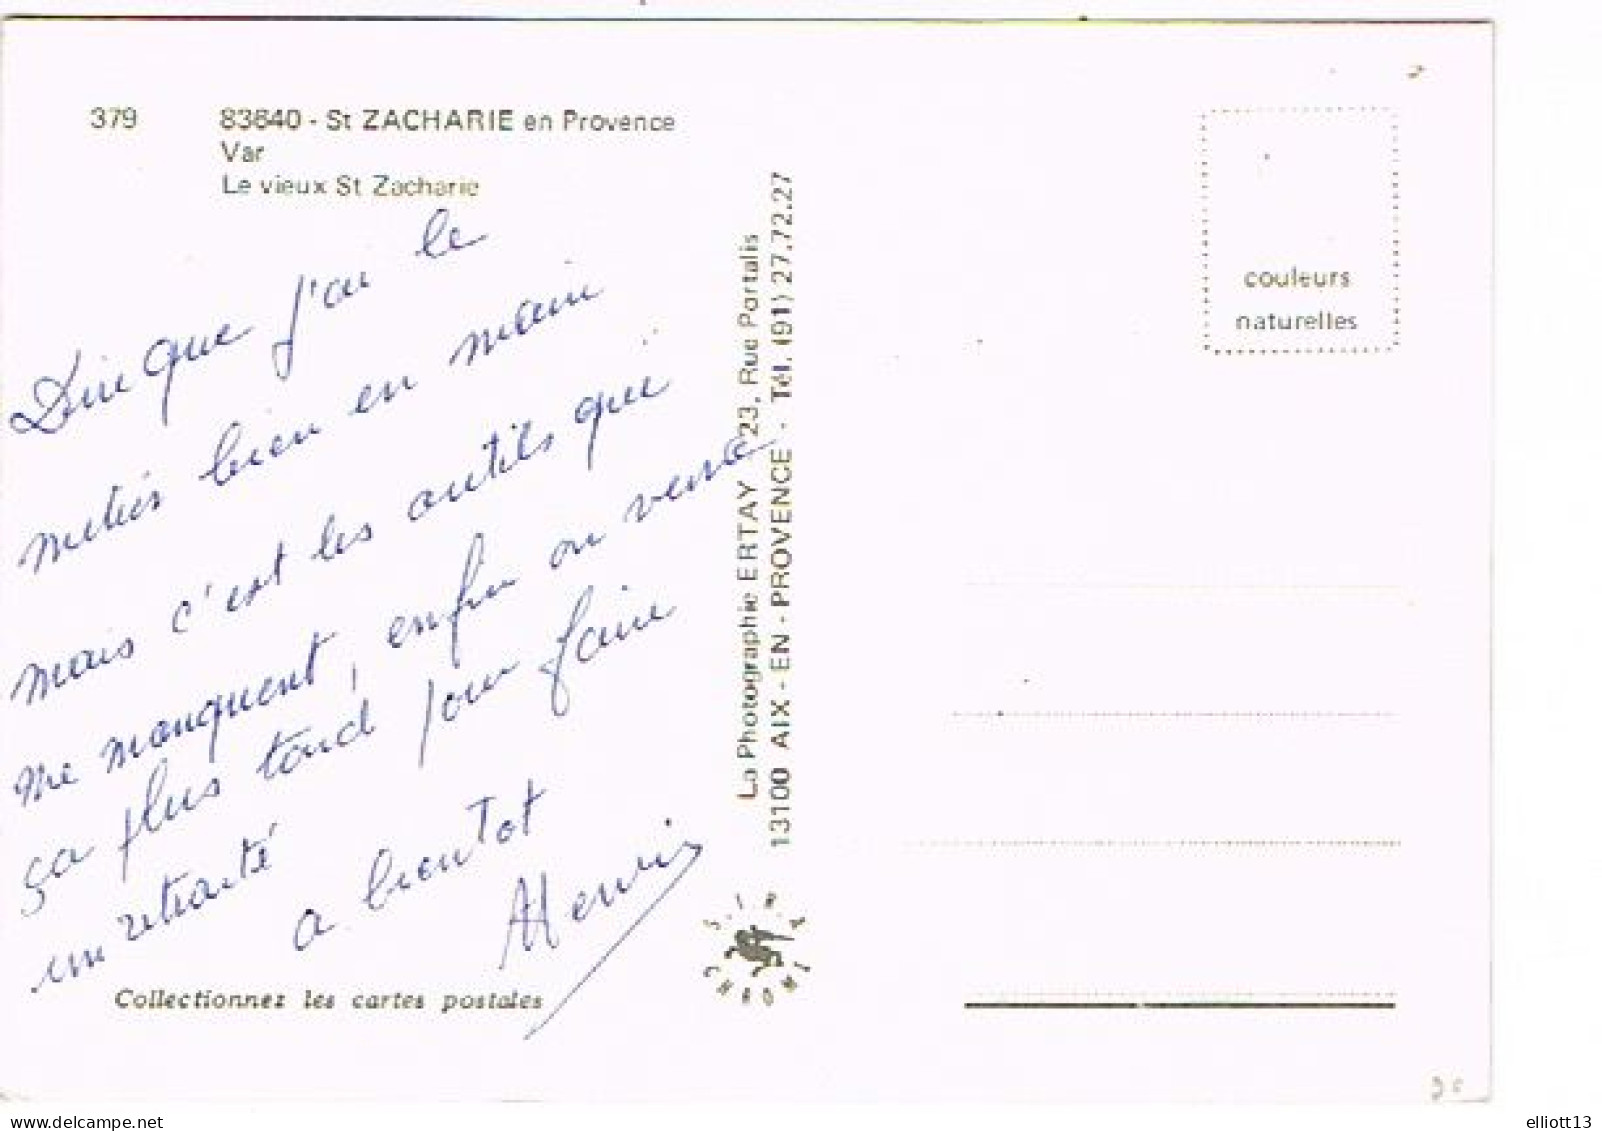 379 83640 - St ZACHARIE en Provence
Var
Le vieux St Zacharie
couleurs
naturelles
Dire que j'ai le
metier bien en main
mais c'est les outils qui
me manquent, enfin on verra
ça plus tard pour faire
un retraité
a bientot
Collectionnez les cartes postales
La Photographie ERTAY 23, Rue Portalis
13100 AIX - EN - PROVENCE - Tél. (91) 27.72.27
CHROME
elliott13